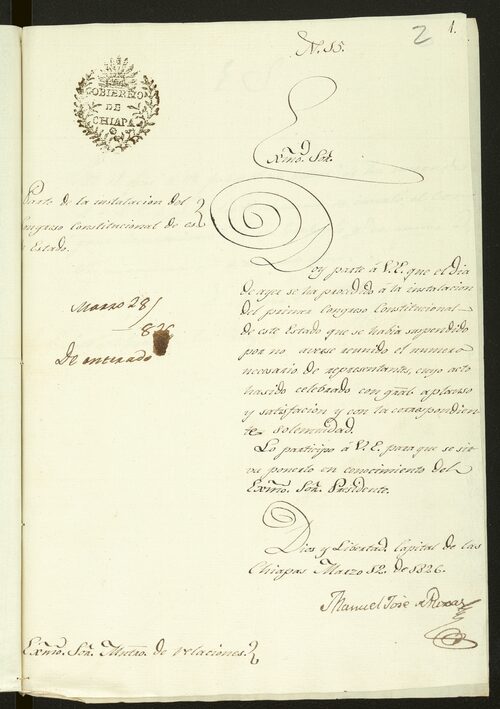 2
1.
N. 15.
GOBIERNO
DE
CHIAPA
Exmo. Sor.
Parte de la instalacion del
Congreso Constitucional de es
Estado.
Doy parte á V.E. que el dia
de ayer se ha procedido á la instalacion
del primer Congreso Constitucional
de este Estado que se habia suspendido
por no averse reunido el numero
necesario de representantes, cuyo acto
ha sido celebrado con gral. aplauso
y satisfacion y con la correspondien
te solemnidad.
Lo participo á V.E. para que se sir
va ponerlo en conocimiento del
Exmo. Sor. Presidente.
Marzo 28/
826
De enterado
Dios y Libertad. Capital de las
Chiapas Marzo 12. de 1826.
Manuel José de Roxas
Exmo. Sor. Mntro. de relaciones.